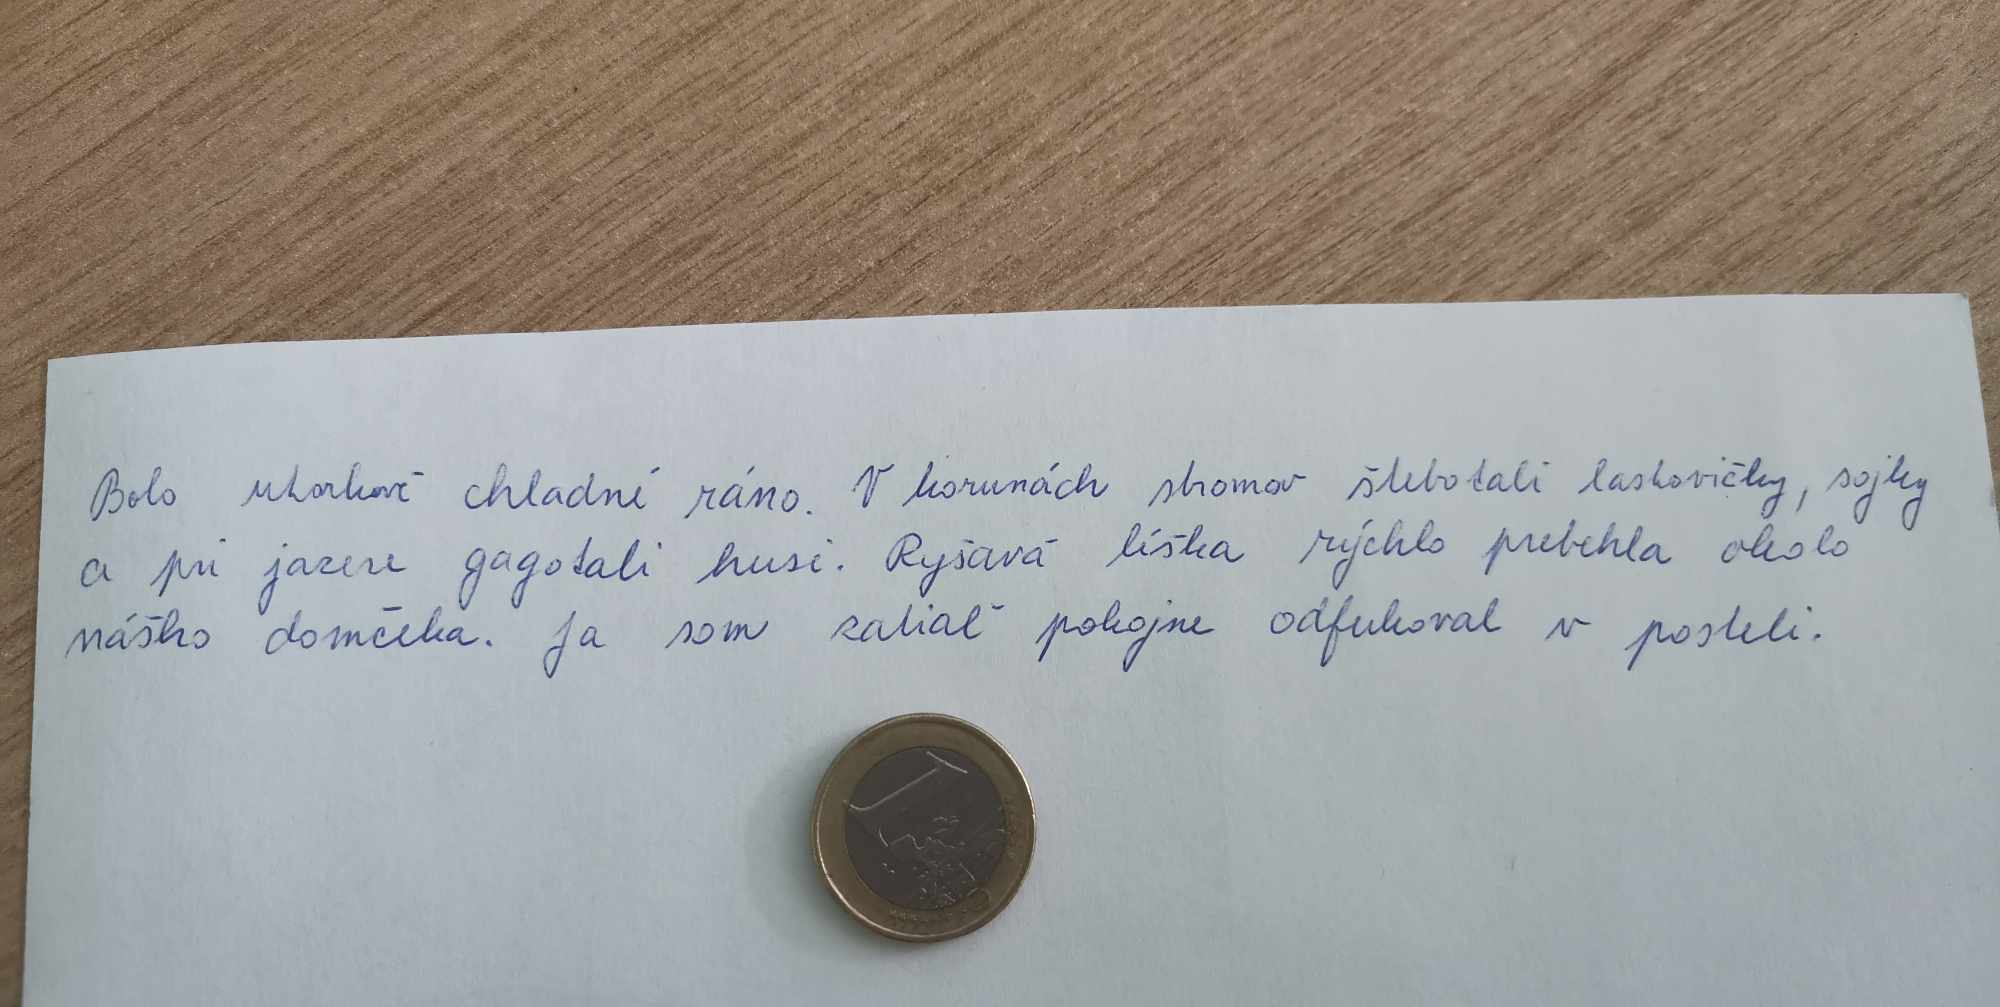 Bolo utorkové chladné ráno. V korunách stromov štebotali lastovičky, sojky
a pri jazere gagotali husi. Ryšavá líška rýchlo prebehla okolo
nášho domčeka. Ja som zatiaľ pokojne odfukoval v posteli.
1